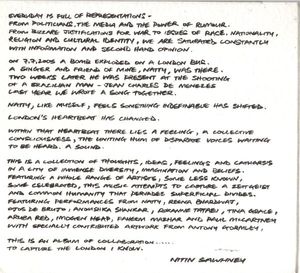 EVERYDAY IS FULL OF REPRESENTATIONS -
FROM POLITICIANS, THE MEDIA AND THE POWER OF RUMOUR.
FROM BIZARRE JUSTIFICATIONS FOR WAR TO ISSUES OF RACE, NATIONALITY,
RELIGION AND CULTURAL IDENTITY, WE ARE SATURATED CONSTANTLY
WITH INFORMATION AND SECOND HAND OPINION.
ON 7.7.2005 A BOMB EXPLODED ON A LONDON BUS.
A SINGER AND FRIEND OF MINE, NATTY, WAS THERE.
TWO WEEKS LATER HE WAS PRESENT AT THE SHOOTING
OF A BRAZILIAN MAN - JEAN CHARLES DE MENEZES
LAST YEAR WE WROTE A SONG TOGETHER.
NATTY, LIKE MYSELF, FEELS SOMETHING INDEFINABLE HAS SHIFTED.
LONDON'S HEARTBEAT HAS CHANGED.
WITHIN THAT HEARTBEAT THERE LIES A FEELING, A COLLECTIVE
CONSCIOUSNESS, THE UNITING HUM OF DISPARATE VOICES WAITING
TO BE HEARD. A SOUND.
THIS IS A COLLECTION OF THOUGHTS, IDEAS, FEELINGS AND CATHARSIS
IN A CITY OF IMMENSE DIVERSITY, IMAGINATION AND BELIEFS.
FEATURING A WHOLE RANGE OF ARTISTS, SOME LESS KNOWN,
SOME CELEBRATED, THIS MUSIC ATTEMPTS TO CAPTURE A ZEITGEIST
AND COMMON HUMANITY THAT PERVADES SUPERFICIAL DIVIDES.
FEATURING PERFORMANCES FROM NATTY, REENA BHARDWAJ,
OJOS DE BRUJO, ANOUSHKA SHANKAR, ROXANNE TATAEI, TINA GRACE,
ARUBA RED, IMOGEN HEAP, FAHEEM MAZHAR AND PAUL McCARTNEY
WITH SPECIALLY CONTRIBUTED ARTWORK FROM ANTONY GORMLEY,
THIS IS AN ALBUM OF COLLABORATION.....
TO CAPTURE THE LONDON I KNOW.
NITIN SAWHNEY